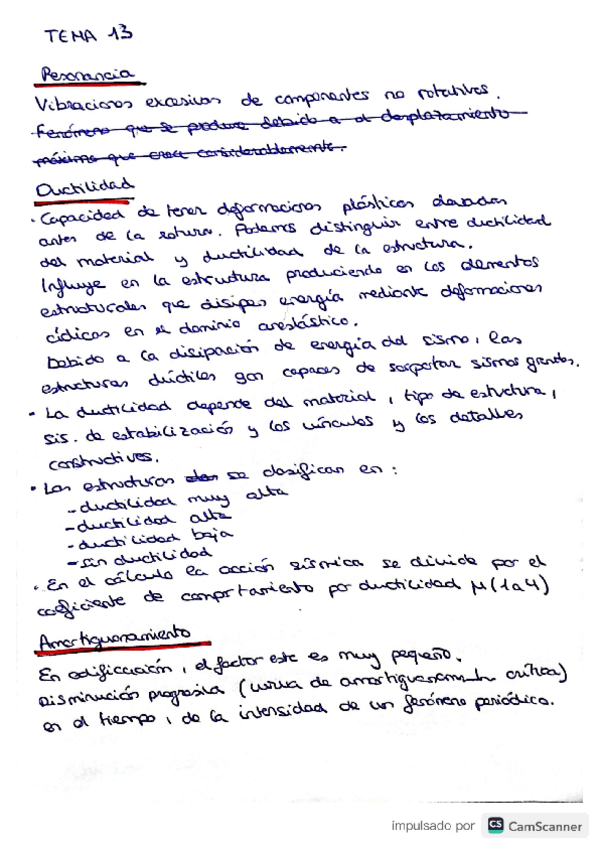 TEMA 13
Resonancia
Vibraciones excesivas de componentes no rotativos.
Fenómeno que se produce debido a el desplazamiento
máximo que crece considerablemente.
Ductilidad
· Capacidad de tener deformaciones plásticas elevadas
antes de la rotura. Podemos distinguir entre ductilidad
del material y ductilidad de la estructura.
Influye en la estructura produciendo en los elementos
estructurales que disipen energía mediante deformaciones
cíclicas en el dominio anelástico.
Debido a la disipación de energía del sismo, las
estructuras dúctiles son capaces de soportar sismos grandes.
· La ductilidad depende del material, tipo de estructura,
sis. de estabilización y los vínculos y los detalles
constructivos.
· Las estructuras se clasifican en:
- ductilidad muy alta
- ductilidad alta
- ductilidad baja
- sin ductilidad
· En el cálculo la acción sísmica se divide por el
coeficiente de comportamiento por ductilidad μ (1 a 4)
Amortiguamiento
En edificación, el factor este es muy pequeño.
Disminución progresiva (curva de amortiguamiento crítica)
en el tiempo, de la intensidad de un fenómeno periódico.
impulsado por CS CamScanner